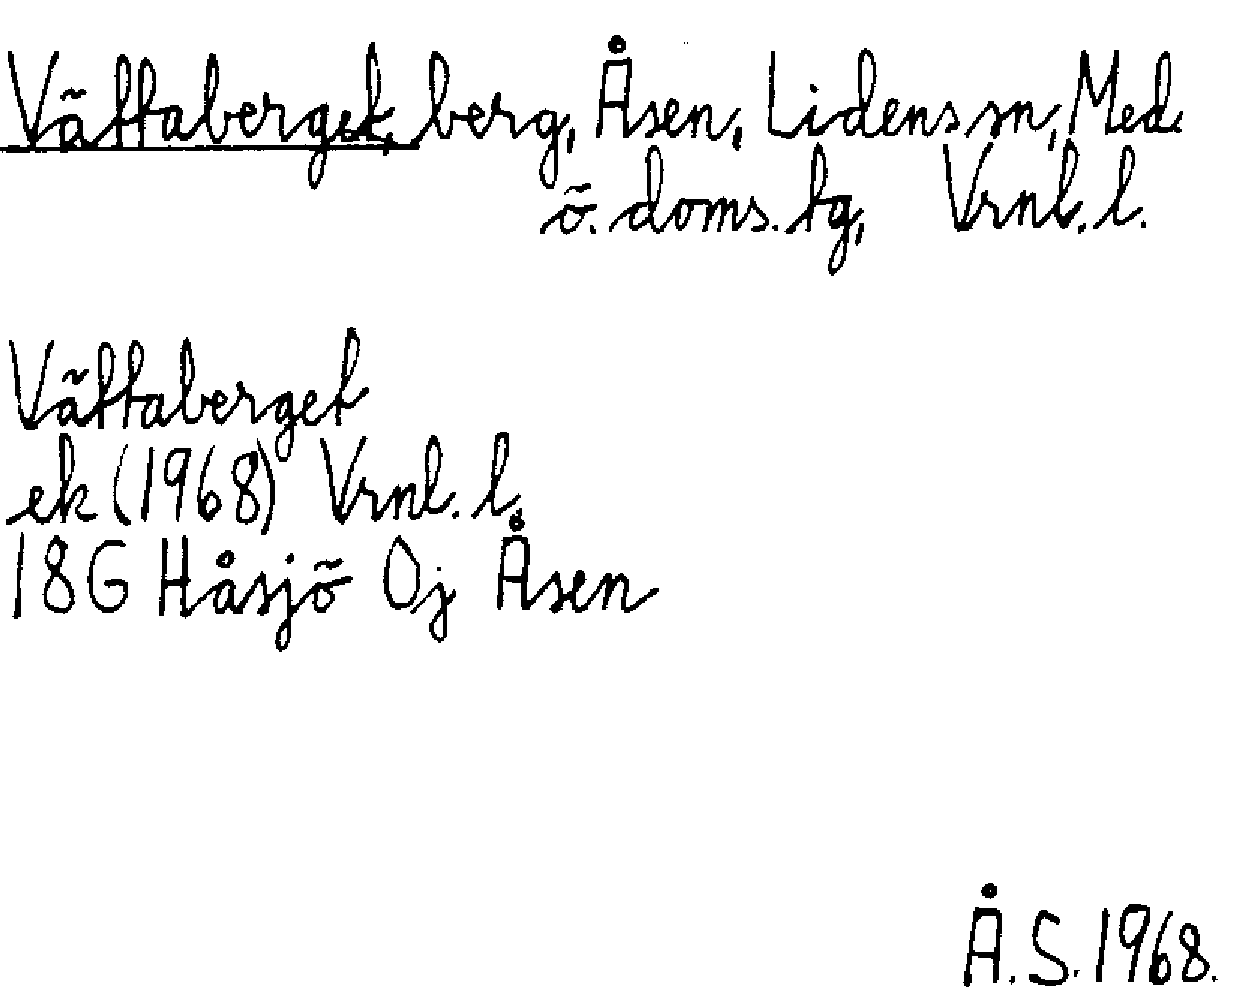 Vättaberget, berg, Åsen, Lidens sn, Med.
ö. doms. tg, Vrnl. l.
Vättaberget
ek (1968) Vrnl. l.
18G Håsjö 0j Åsen
Å. S. 1968.